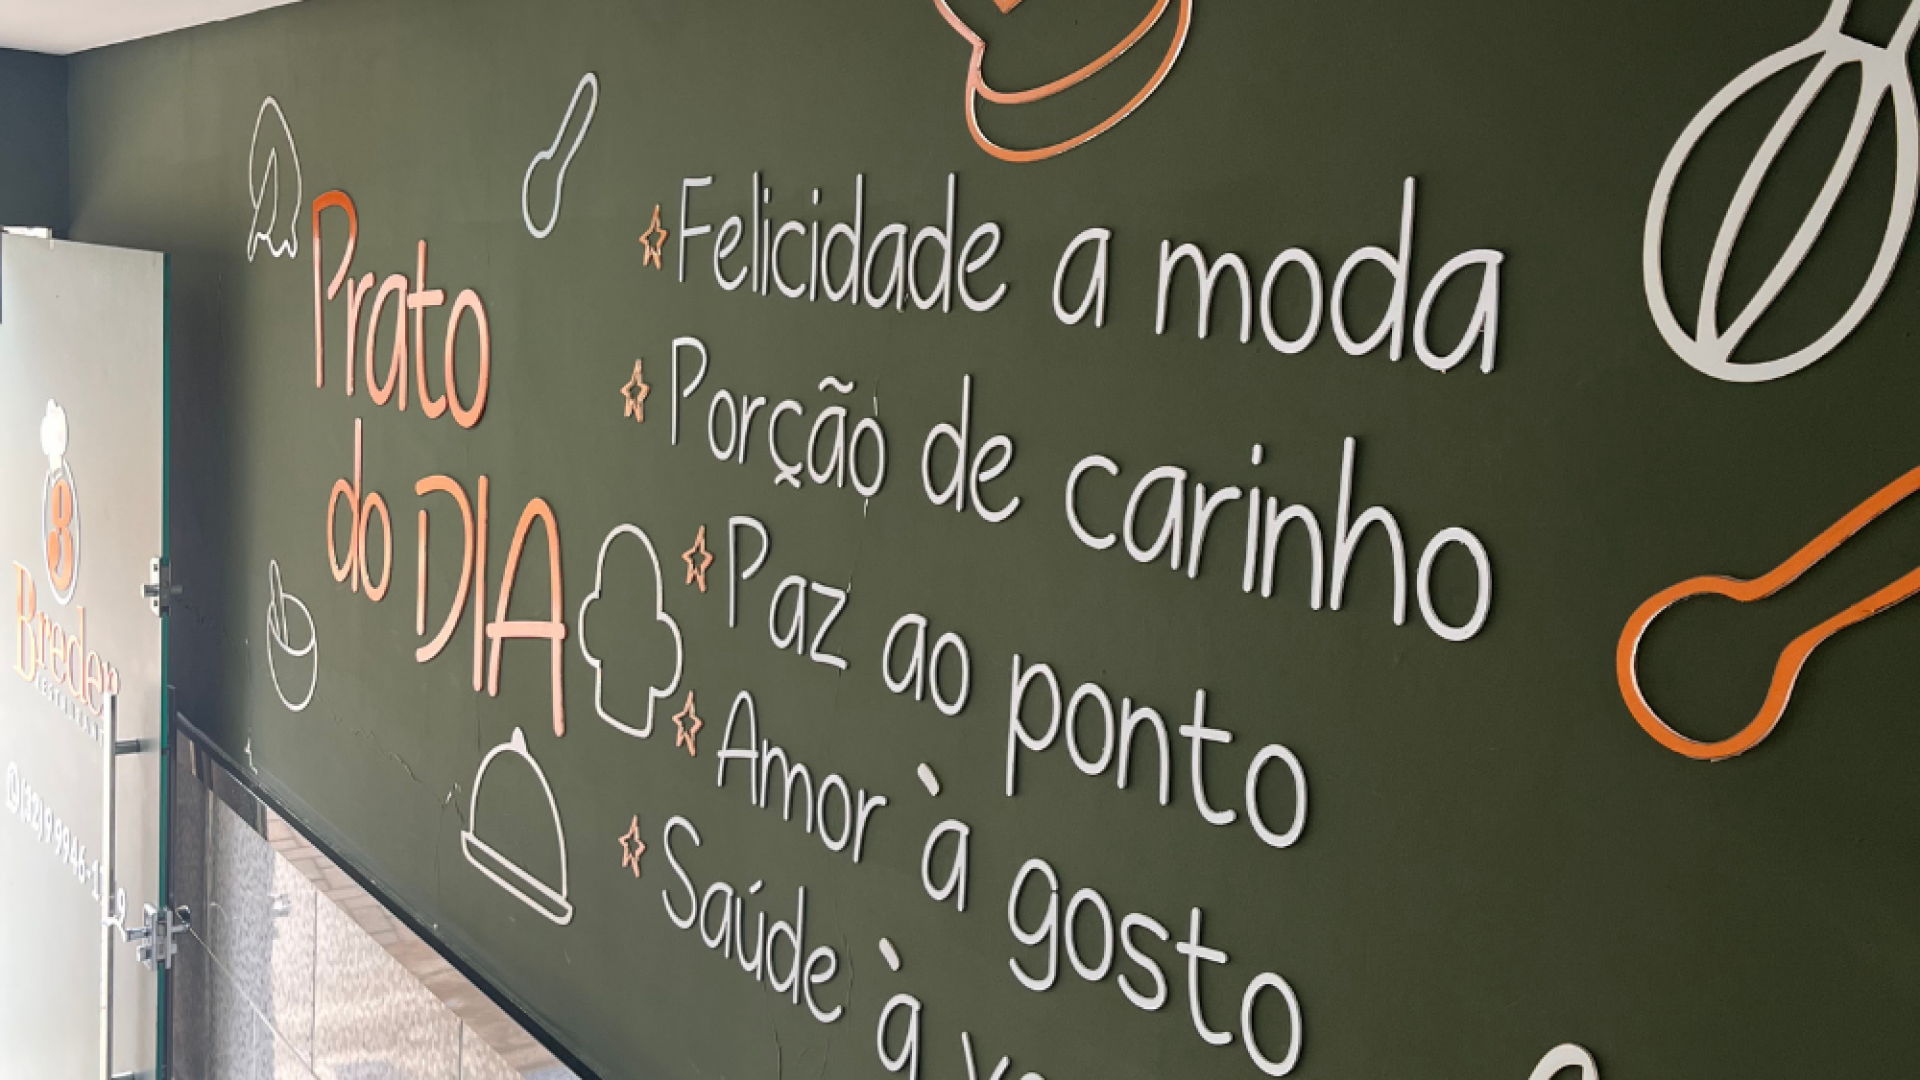 Prato
do DIA
Felicidade a moda
Porção de carinho
Paz ao ponto
Amor à gosto
Saúde à
Breder